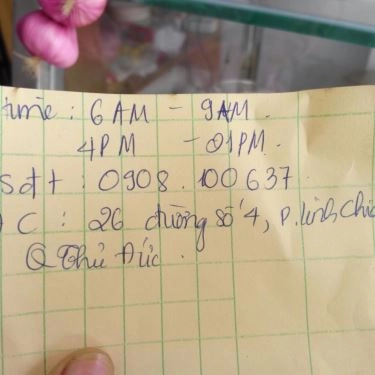 time: 6 AM - 9AM.
4PM - 21PM.
sđt: 0908.100637
C: 26 đường số 4, P. Linh Chiể
Q Thủ Đức.